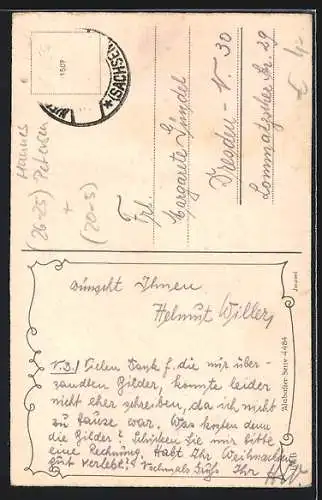 1507
(SACHSEN)
Hannes
Petersen
(26-25)
+
(20-5)
Frl.
Margarete Gündel
Dresden - N. 30
Lommatzscher Str. 29
wünscht Ihnen
Helmut Willer,
N.B! Vielen Dank f. die mir über-
sandten Bilder, konnte leider
nicht eher schreiben, da ich nicht
zu Hause war. Was kosten denn
die Bilder? Schicken Sie mir bitte
eine Rechnung. Habt Ihr Weihnachten
gut verlebt? Nochmals Grüße Ihr H.W.
Alabaster-Serie 4484